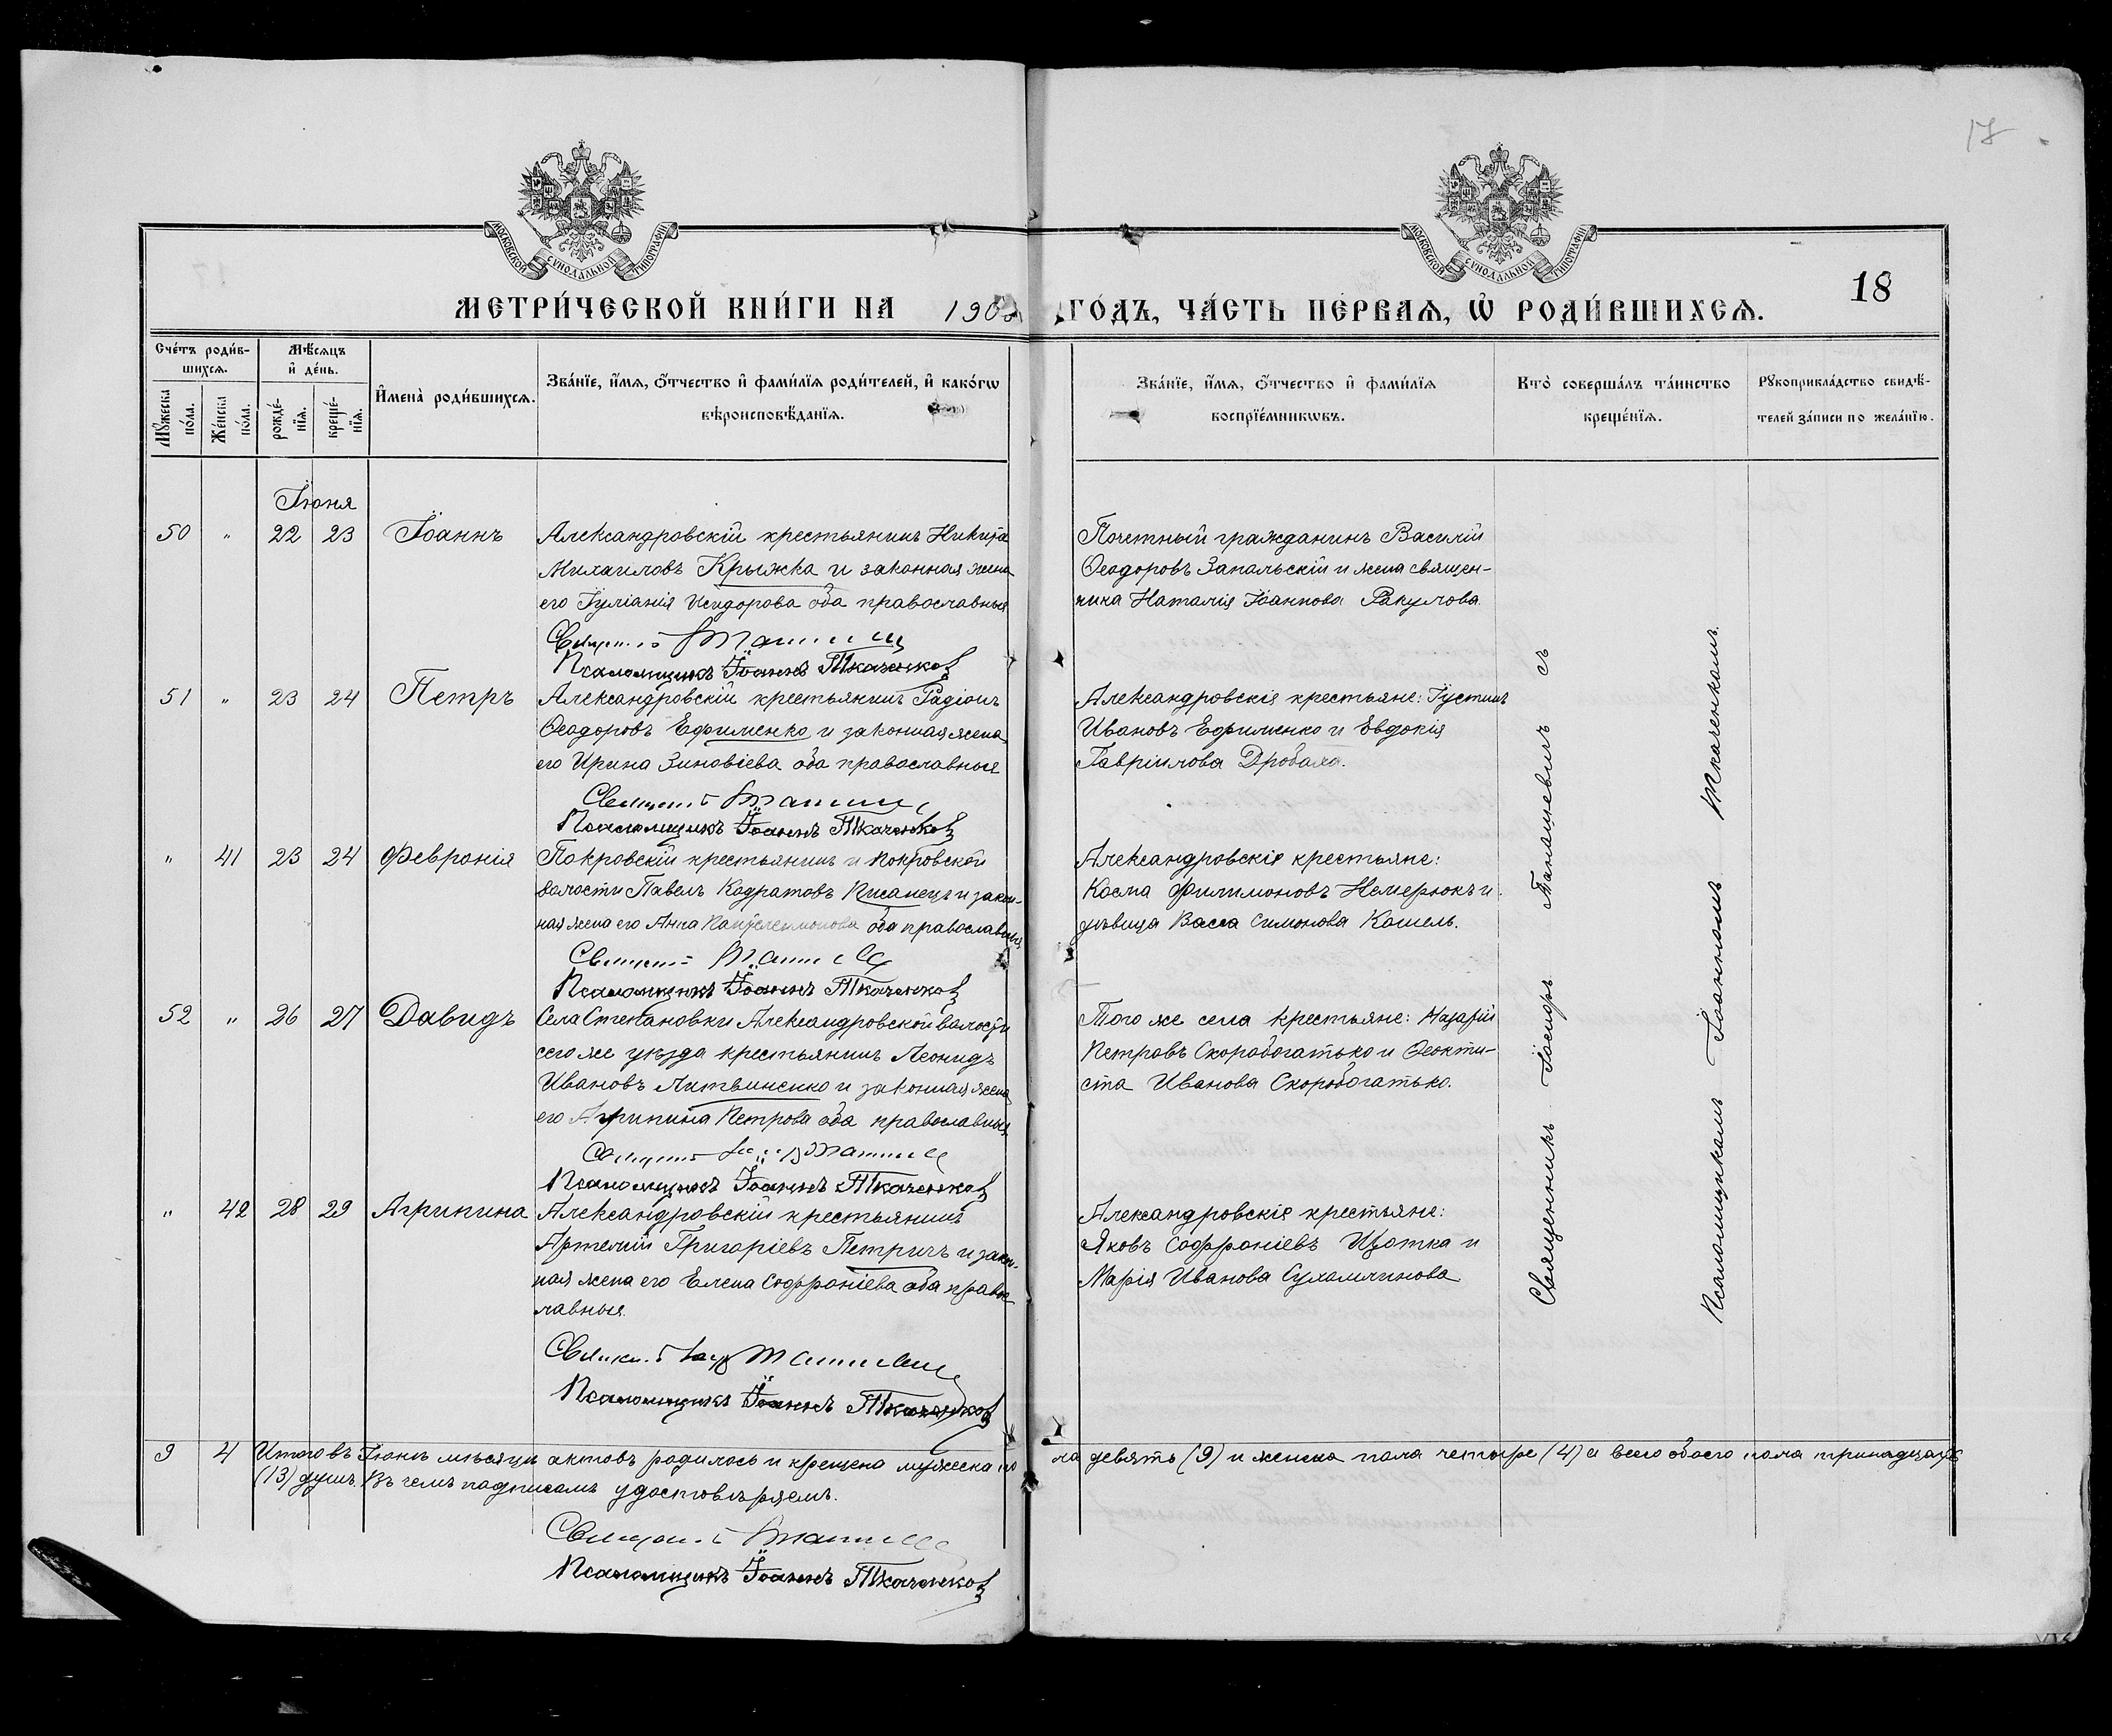 17
МОСКОВСКОЙ СѴНОДАЛЬНОЙ ТИПОГРАФІИ
МОСКОВСКОЙ СѴНОДАЛЬНОЙ ТИПОГРАФІИ
18
МЕТРИ́ЧЕСКОЙ КНИ́ГИ НА 190 ГО́ДЪ, ЧА́СТЬ ПЕ́РВАѦ, Ѡ҆ РОДИ́ВШИХСѦ.
Сче́тъ роди́в-
шихсѧ.
Мꙋжеска по́ла.
Же́нска по́ла.
Мѣ́сѧцъ
и҆ де́нь.
рожде́-нїѧ.
креще́-нїѧ.
И҆мена̀ роди́вшихсѧ.
Зва́нїе, и҆́мѧ, ѻ҆́тчество и҆ фами́лїѧ роди́телей, и҆ како́гѡ
вѣроисповѣ́данїѧ.
Зва́нїе, и҆́мѧ, ѻ҆́тчество и҆ фами́лїѧ
воспрїе́мникѡвъ.
Кто̀ соверша́лъ та́инство
креще́нїѧ.
Рꙋкоприкла́дство свидѣ́-
телей за́писи по жела́нїю.
Іюня
50 " 22 23 Іоаннъ
Александровскій крестьянинъ Никита
Михаиловъ Крыжка и законная жена
его Іуліанія Исидорова оба православные
Псаломщикъ Іоаннъ Ткаченков
Почетный гражданинъ Василій
Ѳеодоровъ Запальскій и жена священ-
ника Наталія Іоаннова Ракулова
51 " 23 24 Петръ
Александровскій крестьянинъ Радіонъ
Ѳеодоровъ Ефименко и законная жена
его Ирина Зиновіева оба православные
Псаломщикъ Іоаннъ Ткаченков
Александровскіе крестьяне: Іустинъ
Ивановъ Ефименко и Евдокія
Гавріилова Дробаха.
" 41 23 24 Февронія
Покровскій крестьянинъ и Покровской
волости Павелъ Кодратовъ Писанецъ и закон-
ная жена его Анна Пантелеимонова оба православные
Псаломщикъ Іоаннъ Ткаченков
Александровскіе крестьяне:
Косма Филимоновъ Немерюкъ и
дѣвица Васса Симонова Кошель.
52 " 26 27 Давидъ
Села Степановки Александровской волости
сего же уѣзда крестьянинъ Леонидъ
Ивановъ Литвиненко и законная жена
его Агрипина Петрова оба православные
Псаломщикъ Іоаннъ Ткаченков
Того же села крестьяне: Назарій
Петровъ Скоробогатько и Ѳеокти-
ста Иванова Скоробогатько.
" 42 28 29 Агрипина
Александровскій крестьянинъ
Артемій Григоріевъ Петричъ и закон-
ная жена его Елена Софроніева оба право-
лавные.
Псаломщикъ Іоаннъ Ткаченков
Александровскіе крестьяне:
Яковъ Софроніевъ Щотка и
Марія Иванова Сухомлинова
Священникъ Іосифъ Танашевичъ съ
Псаломщикомъ Іоанномъ Ткаченкомъ.
9 4 Итого въ Іюнѣ мѣсяцѣ актовъ родилось и крещено мужеска по ла девять (9) и женска пола четыре (4) а всего обоего пола тринадцать
(13) душъ. Въ чемъ подписомъ удостовѣряемъ.
Псаломщикъ Іоаннъ Ткаченков